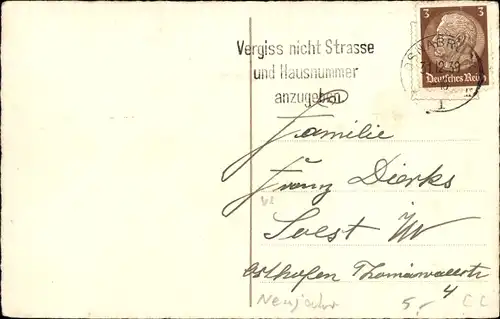 Vergiss nicht Strasse
und Hausnummer
anzugeben
3 3
Deutsches Reich
31.12.39
Familie
Franz Dierks
Soest i/W
Osthofen Thomäwallstr
4
Neujahr 5,-